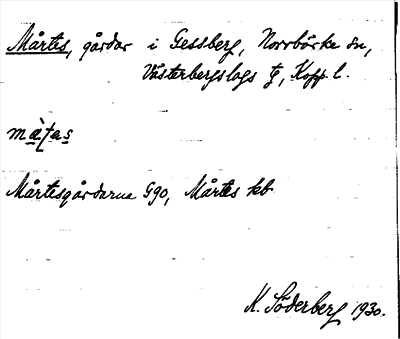 Mårtes, gårdar i Gessberg, Norrbärke sn,
Västerbergslags tg, Kopp. l.
màṭas
Mårtesgårdarna G90, Mårtes kb
K. Söderberg 1930.